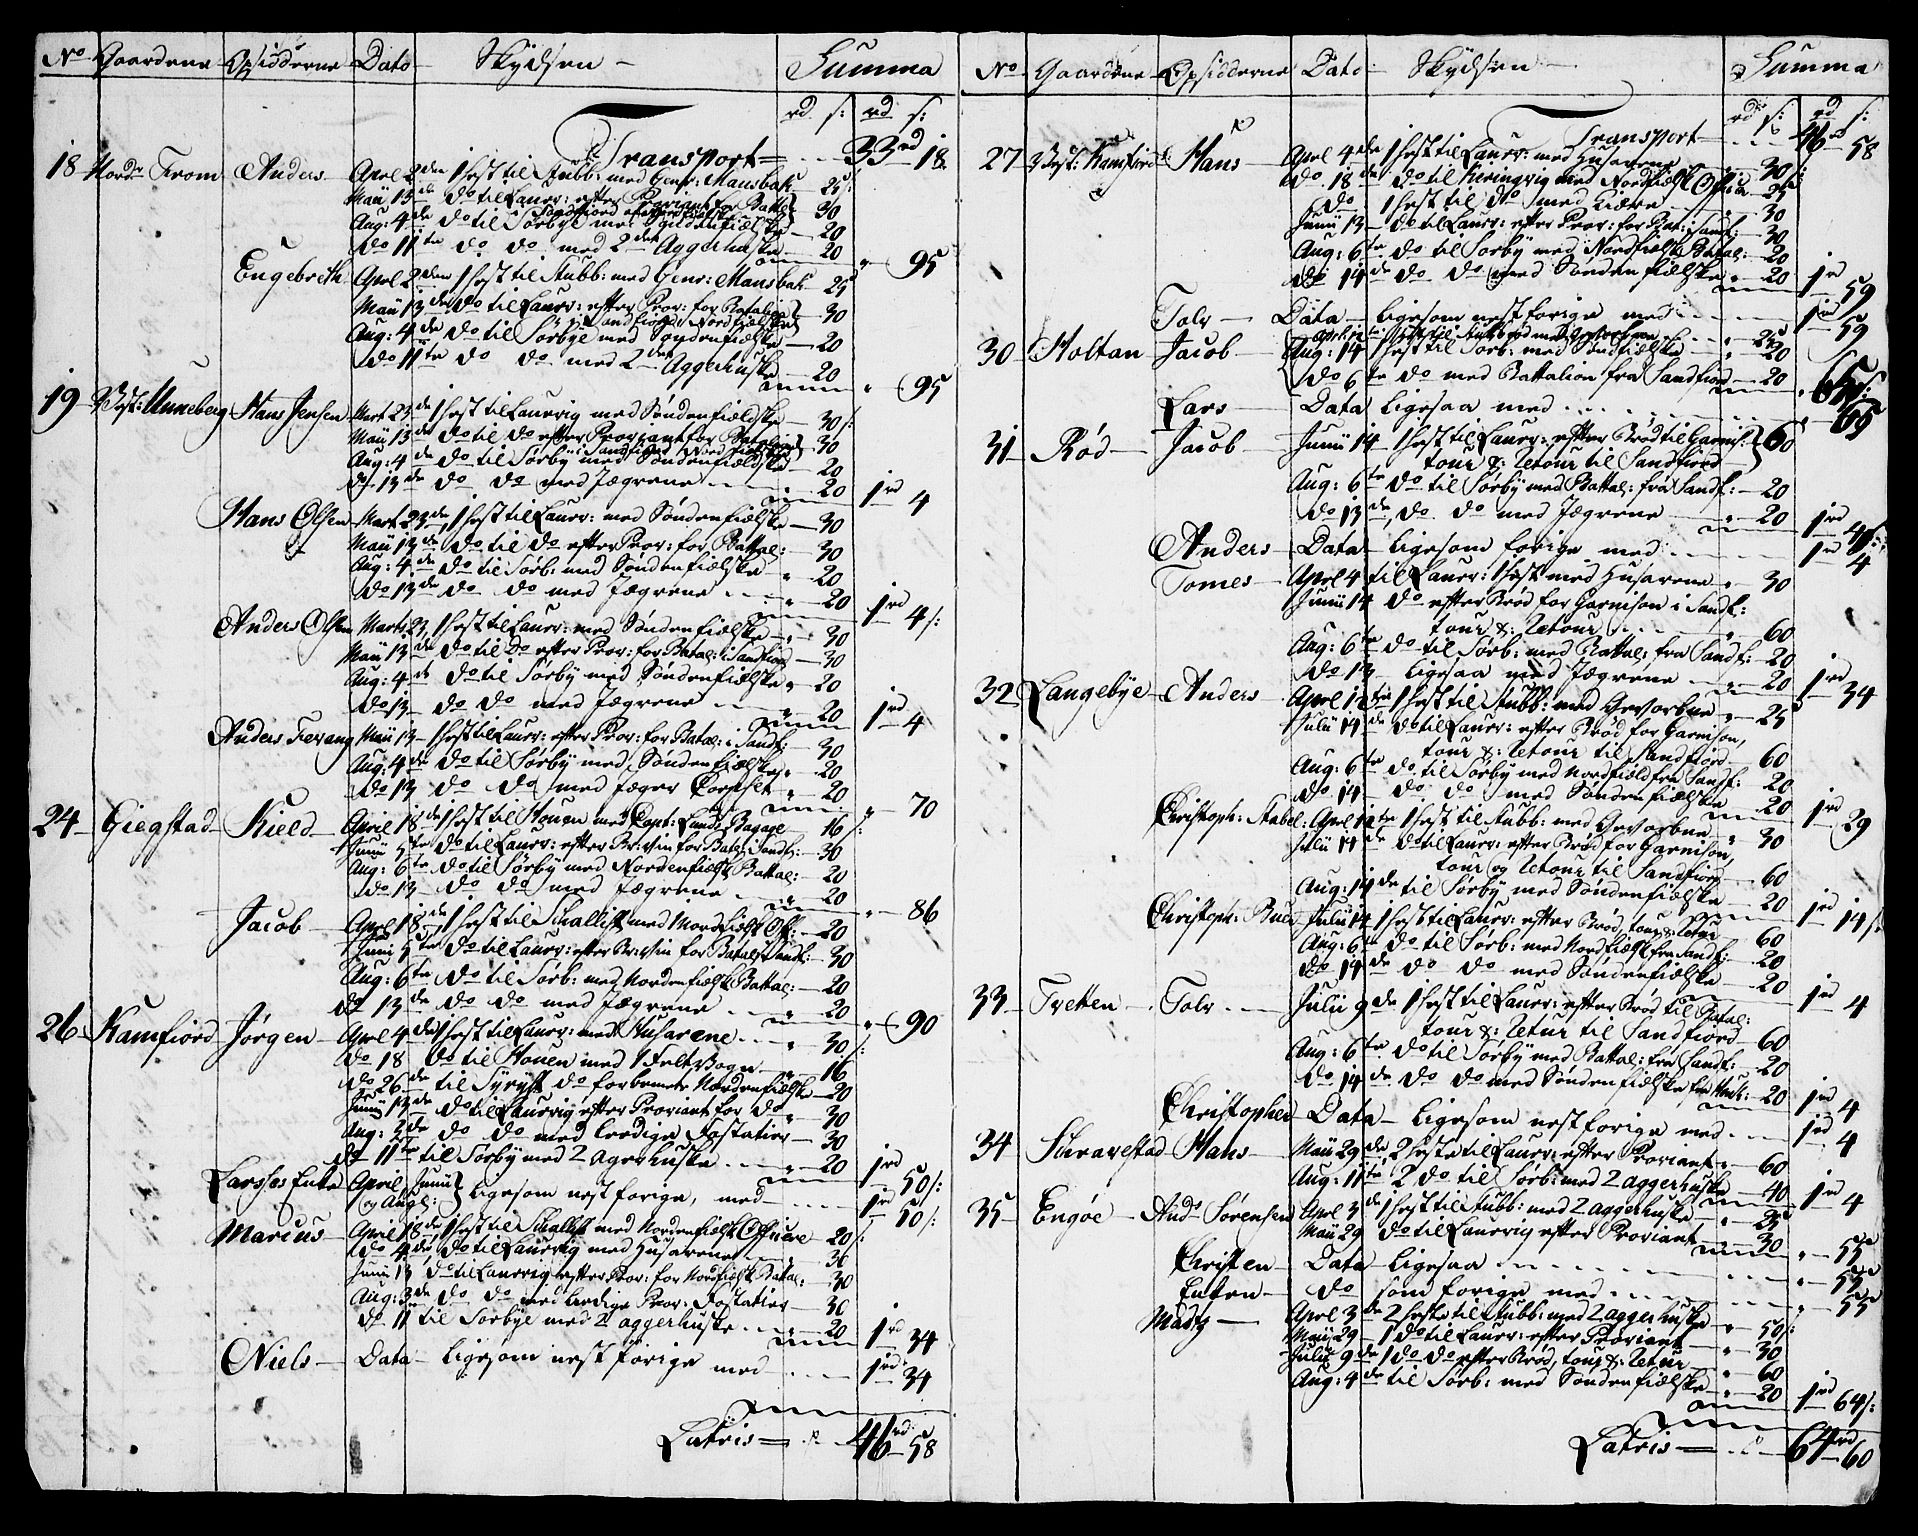 No Gaardene Opsidderne Dato Skydsen Summa
rd s: rd s:
Transport 33rd 18
18 Nordr From Anders April 2den 1 hest til Stubb: med Genr: Mansbak 25
Maii 13de do til Laurv: efter Proviant for Battal 30
Sandfiord
Aug: 4de do til Sørbye med Søndenfielske 20
do 11te do do med 2den Aggerhuske 20
95
Engebreth April 2den 1 hest til Stubb: med Genr: Mansbak 25
Maii 13de do til Laurv: efter Prov: for Batalion 30
Aug: 4de do til Sørbye med Søndenfielske 20
do 11te do do med 2den Aggerhuske 20
95
19 Vest: Unneberg Hans Jensen Mart 23de 1 hest til Laurvig med Søndenfieldske 30 s:
Maii 13de do til do efter Proviant for Batalion 30
Aug: 4de do til Sørby med Søndenfieldske 20
do 13de do do med Jægerne 20
1rd 4
Hans Olsen Mart 23de 1 hest til Laurv: med Søndenfielske 30
Maii 13de do til do efter Prov: for Battal: 30
Aug: 4de do til Sørb: med Søndenfielske 20
do 13de do do med Jægrene 20
1rd 4 s:
Anders Olsen Marti 23 1 hest til Laurv: med Søndenfielske 30
Maii 13de do til do efter Prov: for Batal: i Sandfiord 30
Aug: 4de do til Sørby med Søndenfielske 20
do 13 do do med Jægrene 20
1rd 4
Anders Ferang Maii 13 1 hest til Laurv: efter Prov: for Batal: i Sandf: 30
Aug: 4de do til Sørby med Søndenfielske 20
do 13 do do med Jæger Corpset 20
70
24 Giegstad Kield April 18de 1 hest til Houen med Capt: Lunds Bagage 16 s:
Junii 5te do til Laurv: efter Pr:vin for Batal: i Sandf: 30
Aug: 6te do til Sørby med Nordenfielsk Battal: 20
do 13 do do med Jægrene 20
86
Jacob April 18de 1 hest til Skallist med Nordfielsk Off: 20
Junii 5te do til Laurv: efter Pr:vin for Batal: Sandf: 30
Aug: 6te do til Sørb: med Nordenfielsk Battal: 20
do 13de do do med Jægrene 20
90
26 Kamfiord Jørgen April 4de 1 hest til Laurv: med Husarene 30 s:
do 18 do til Houen med 1 Felt Vogn 16
do 26de til Syryst do forbemte Nordenfielske 20
Junii 13de do til Laurvig efter Proviant for do 30
Aug: 2de do do med ledige Fostatier 30
do 11te til Sørby med 2 agerhuske 20
1rd 50 s:
Larses Enke April Junii og Aug: ligesom nest forige, med 1rd 50 s:
Marcus April 18de 1 hest til Skallist med Nordenfielsk Officere 20 s:
do 4de do til Laurvig med Husarene 30
Junii 13 do til Laurvig efter Prov: for Nordfielsk Batal: 30
Aug: 3de do do med ledige Prov: Fostatier 30
do 11te til Sørbye med 2 aggerhuske 20
1rd 34
Niels Data ligesom nest forige med 1rd 34
Latris 46rd 58
No Gaardene Opsidderne Dato Skydsen Summa
rd s: rd s:
Transport 46rd 58
27 Vest: Kamfiord Hans April 4de 1 hest til Laurv: med Husarene 30
do 18de do til Heringvig med Nordfielsk Officer 25
do 1 hest til do med Lière 30
Junii 13 do til Laurv: efter Prov: for Bat: Sandf: 30
Aug: 6te do til Sørby med Nordfielsk Batal: 20
do 14de do do med Søndenfielske 20
1rd 59
Tolv Data ligesom nest forige med 1rd 59
30 Holtan Jacob April 12te 1 hest til Stubberød med Gevorbene 25
Aug: 14 hest til Sørb: med Søndfielske 20
do 6te do med Battalion fra Sandfiord 20
65 s:
Lars Data ligesaa med 65
31 Rød Jacob Junii 14 1 hest til Laurv: efter Brød til Garnis:
tour &: Retour til Sandfiord 60
Aug: 6te do til Sørby med Battal: fra Sandf: 20
do 13de do do med Jægrene 20
1rd 4 s:
Anders Data ligesom forige med 1rd 4
Tomes April 4 til Laurv: 1 hest med Husarene 30
Junii 14 do efter Brød for Garnison i Sandf:
tour &: Retour 60
Aug: 6te do til Sørb: med Battal: fra Sandf: 20
do 13 ligesaa med Jægrene 20
1rd 34
32 Langebye Anders April 12te 1 hest til Stubb: med Gevorbne 25
Julii 14de do til Laurv: efter Brød for Garnison,
tour &: Retour til Sandfiord 60
Aug: 6te do til Sørby med Nordfield fra Sandf: 20
do 14 do do med Søndenfielske 20
1rd 29
Christoph: Stabel: April 12te 1 hest til Stubb: med Gevorbne 30
Julii 14de do til Laurv: efter Brød for Garnison,
tour og Retour til Sandfiord 60
Aug: 14de til Sørby med Søndenfielske 20
1rd 14 s:
Christoph: Rued Julii 14 1 hest til Laurv: efter Brød, tour & Retur 60
Aug: 6te do til Sørb: med Nordfielsk fra Sandf: 20
do 14de do do med Søndenfielske 20
1rd 4
33 Tvetten Tolv Julii 9de 1 hest til Laurv: efter Brød til Batal:
tour &: Retur til Sandfiord 60
Aug: 6te do til Sørby med Battal: fra Sandf: 20
do 14de do do med Søndenfielske fra 20
1rd 4
Christopher Data ligesom nest forige med 1rd 4
34 Skravestad Hans Maii 29de 2 heste til Laurv: efter Proviant 60
Aug: 11te 2 do til Sørb: med 2 aggerhuske 40
1rd 4
35 Engøe Ands Sørensen April 3de 1 hest til Stubb: med 2 aggerhuske 25
Maii 29 do til Laurvig efter Proviant 30
55
Christen Data ligesaa 55
Enken do som forige med 55
Mads April 3de 2 heste til Stubb: med 2 aggerhuske 50 s:
Maii 29 1 do til Laurv: efter Proviant 30
Julii 9de 1 do do efter Brød, tour &: Retur 60
Aug: 4de til Sørb: med Søndenfielske 20
1rd 64 s:
Latris 64rd 60